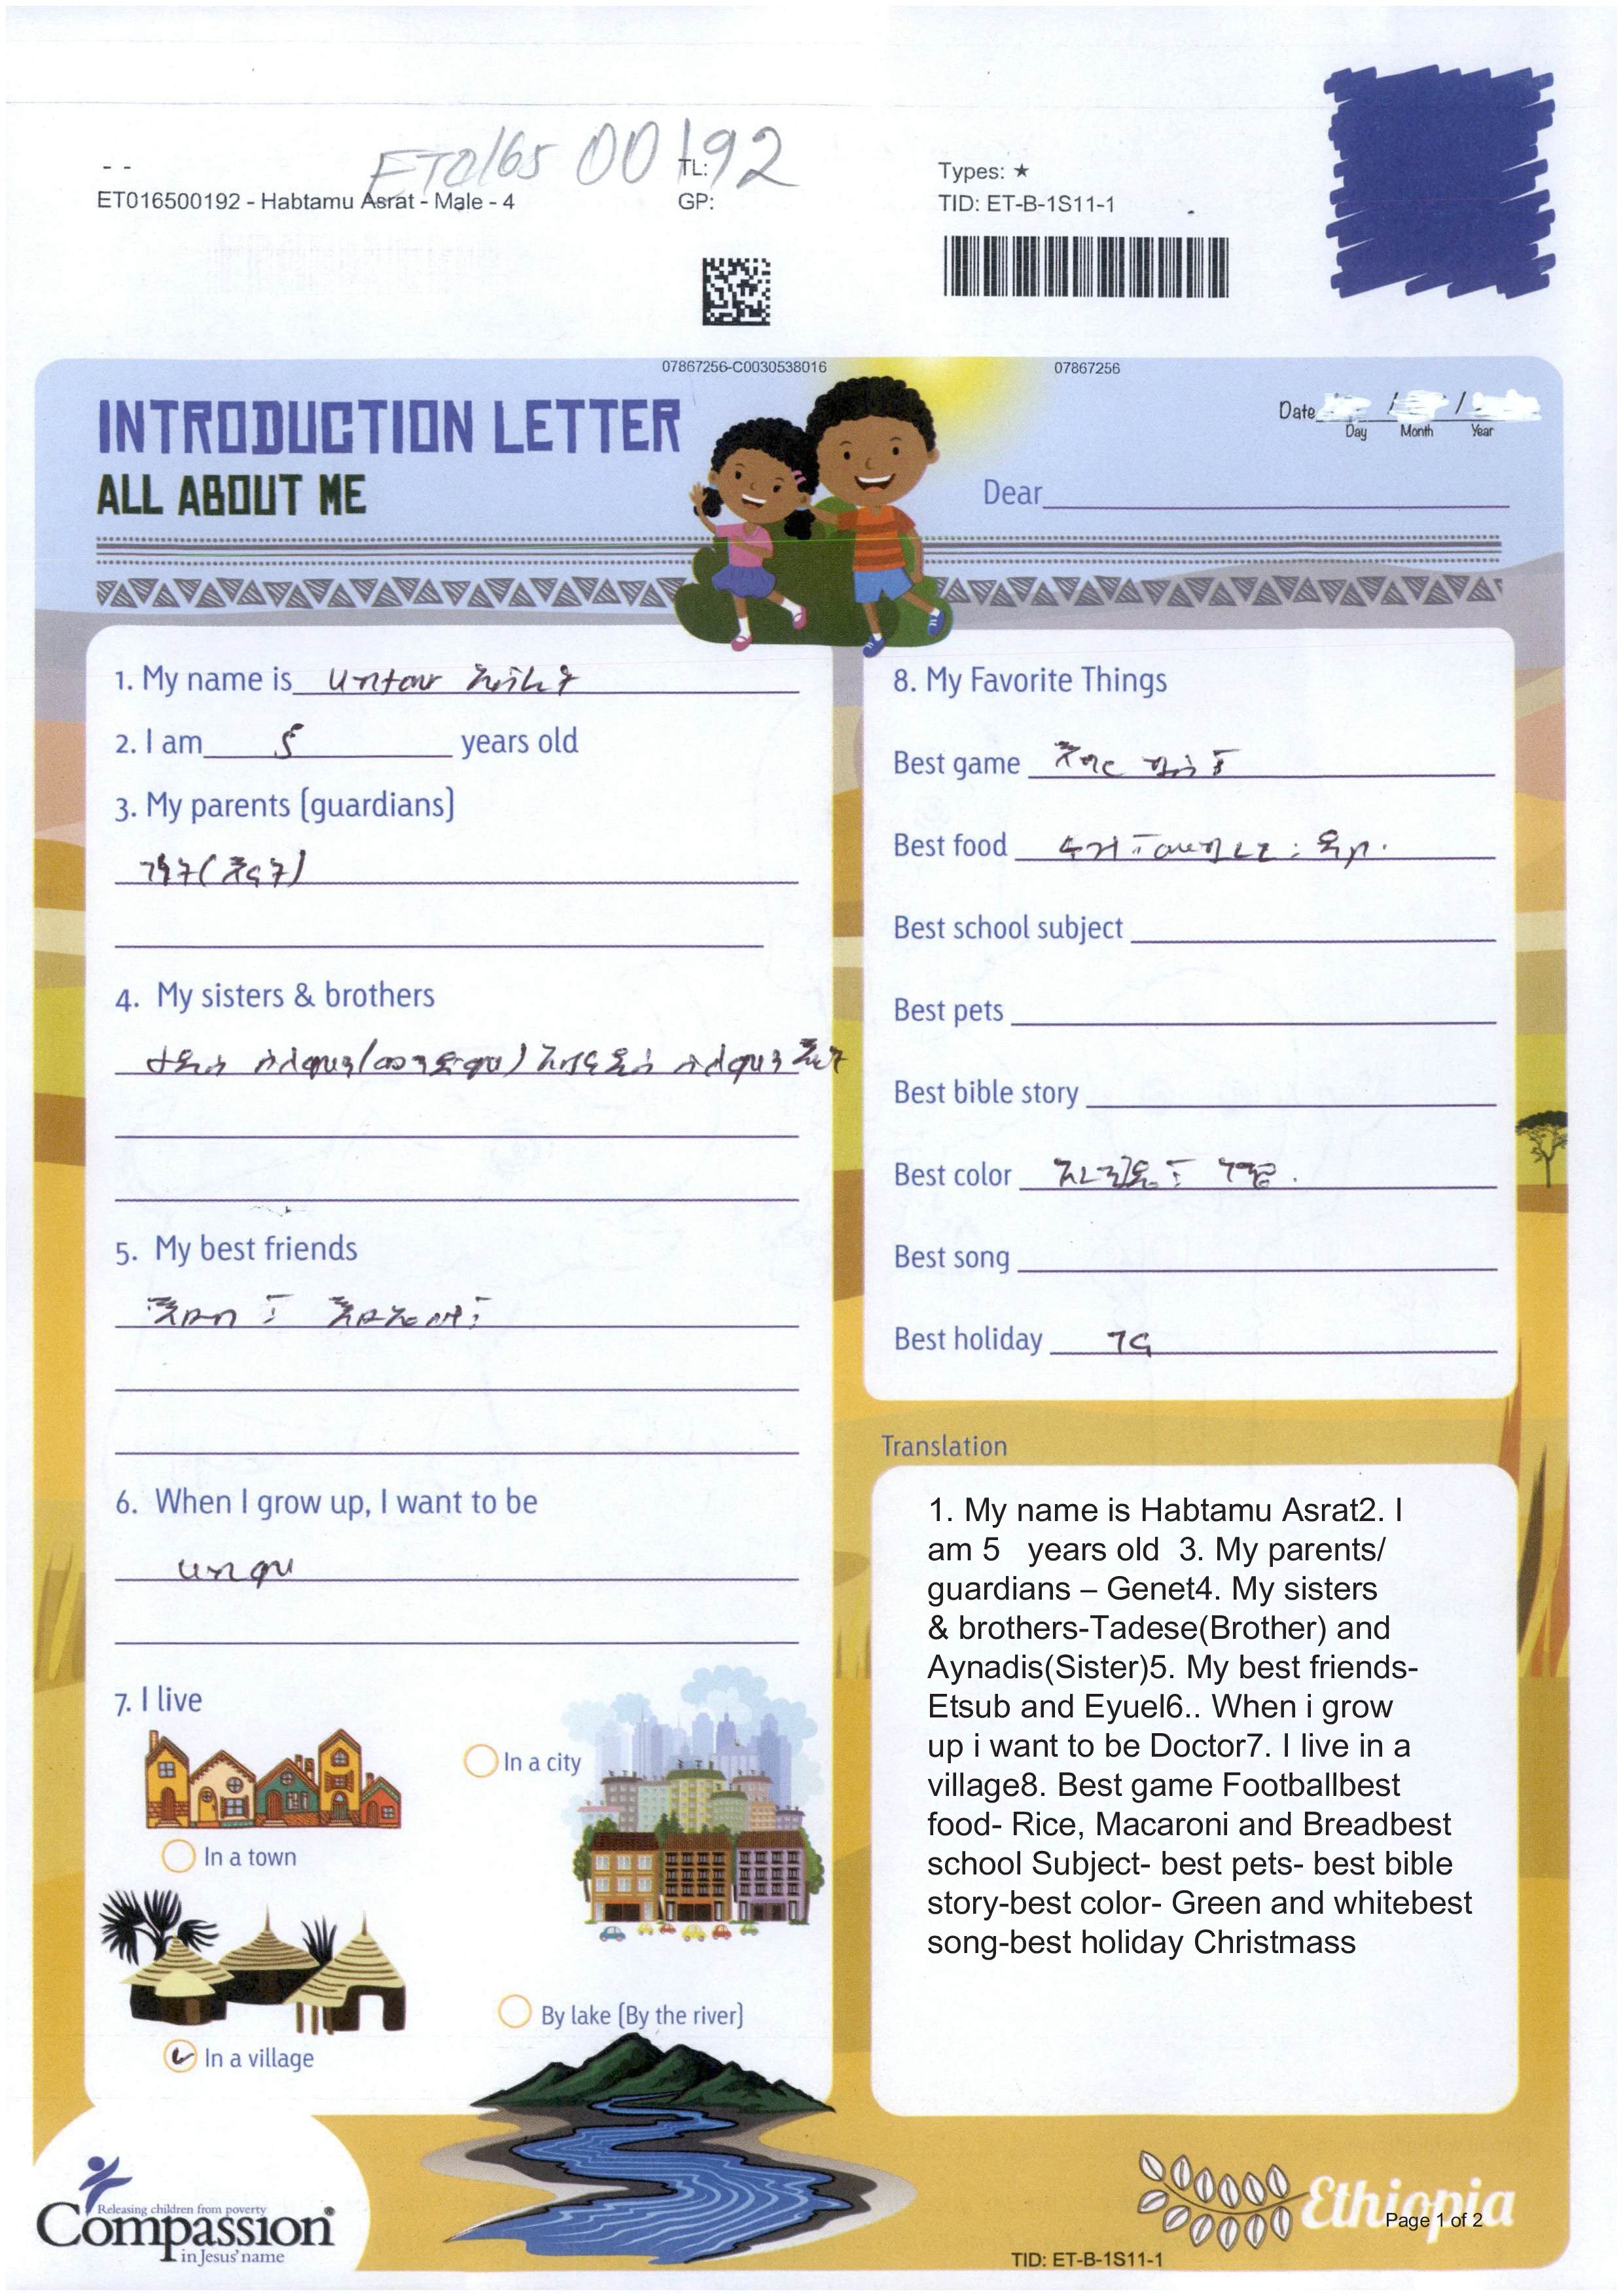 ET0165 00192
- -
TL:
Types: ★
ET016500192 - Habtamu Asrat - Male - 4
GP:
TID: ET-B-1S11-1
07867256-C0030538016
07867256
INTRODUCTION LETTER
ALL ABOUT ME
Date / /
Day Month Year
Dear
1. My name is ሀብታሙ አስራት
2. I am 5 years old
3. My parents (guardians)
ገነት (እናት)
4. My sisters & brothers
5. My best friends
6. When I grow up, I want to be
ሀኪም
7. I live
In a city
In a town
By lake (By the river)
In a village
8. My Favorite Things
Best game እግር ኳስ
Best food
Best school subject
Best pets
Best bible story
Best color አረንጓዴ ፣ ነጭ
Best song
Best holiday ገና
Translation
1. My name is Habtamu Asrat2. I
am 5 years old 3. My parents/
guardians – Genet4. My sisters
& brothers-Tadese(Brother) and
Aynadis(Sister)5. My best friends-
Etsub and Eyuel6.. When i grow
up i want to be Doctor7. I live in a
village8. Best game Footballbest
food- Rice, Macaroni and Breadbest
school Subject- best pets- best bible
story-best color- Green and whitebest
song-best holiday Christmass
Releasing children from poverty
Compassion®
in Jesus' name
Ethiopia
Page 1 of 2
TID: ET-B-1S11-1